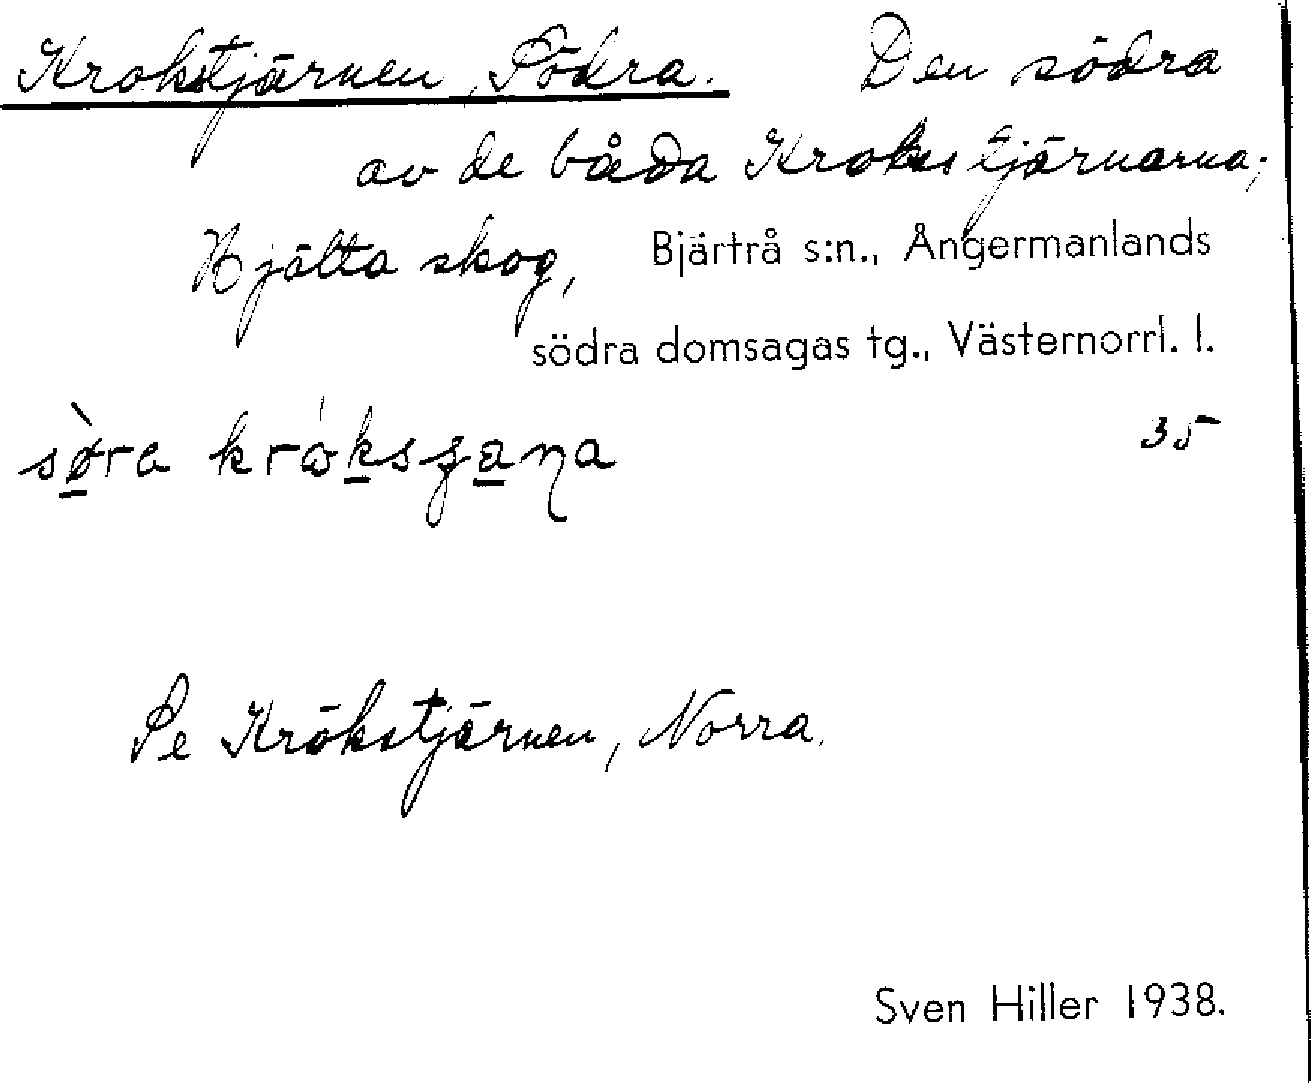 Krokstjärnen, Södra. Den södra
av de båda Krokstjärnarna;
Hjälta skog, Bjärtrå s:n., Ångermanlands
södra domsagas tg., Västernorrl. l.
35
Se Krokstjärnen, Norra.
Sven Hiller 1938.